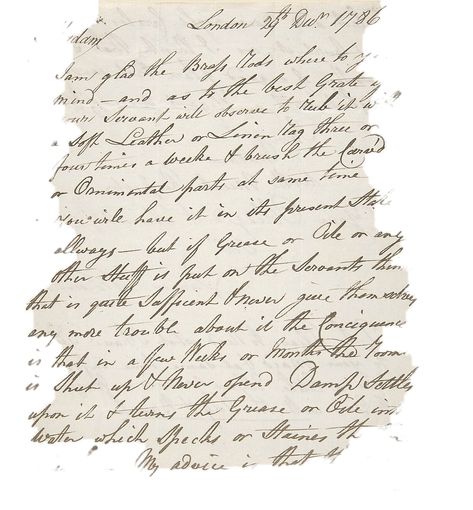 London 29th Decr 1786
adam
I am glad the Brass Rods where to y
mind – and as to the best Grate y
our Servant will observe to rub it w
a Soft Leather or Linen Rag three or
four times a weeke & brush the Carv'd
or Ornimental parts at same time
you will have it in its present Stat
allways – but if Grease or Oile or any
other Stuff is put on the Servants then
that is quite Safficent & never give themselves
any more trouble about it the Conciquence
is that in a few Weeks or Months the Room
is Shut up & Never opend Damp Settles
upon it & turns the Grease or Oile in
Water which Specks or Staines th
My advice is that